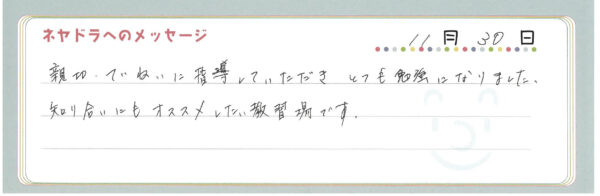 ネヤドラへのメッセージ
11月30日
親切・ていねいに指導していただき とても勉強になりました。
知り合いにもオススメしたい教習場です。